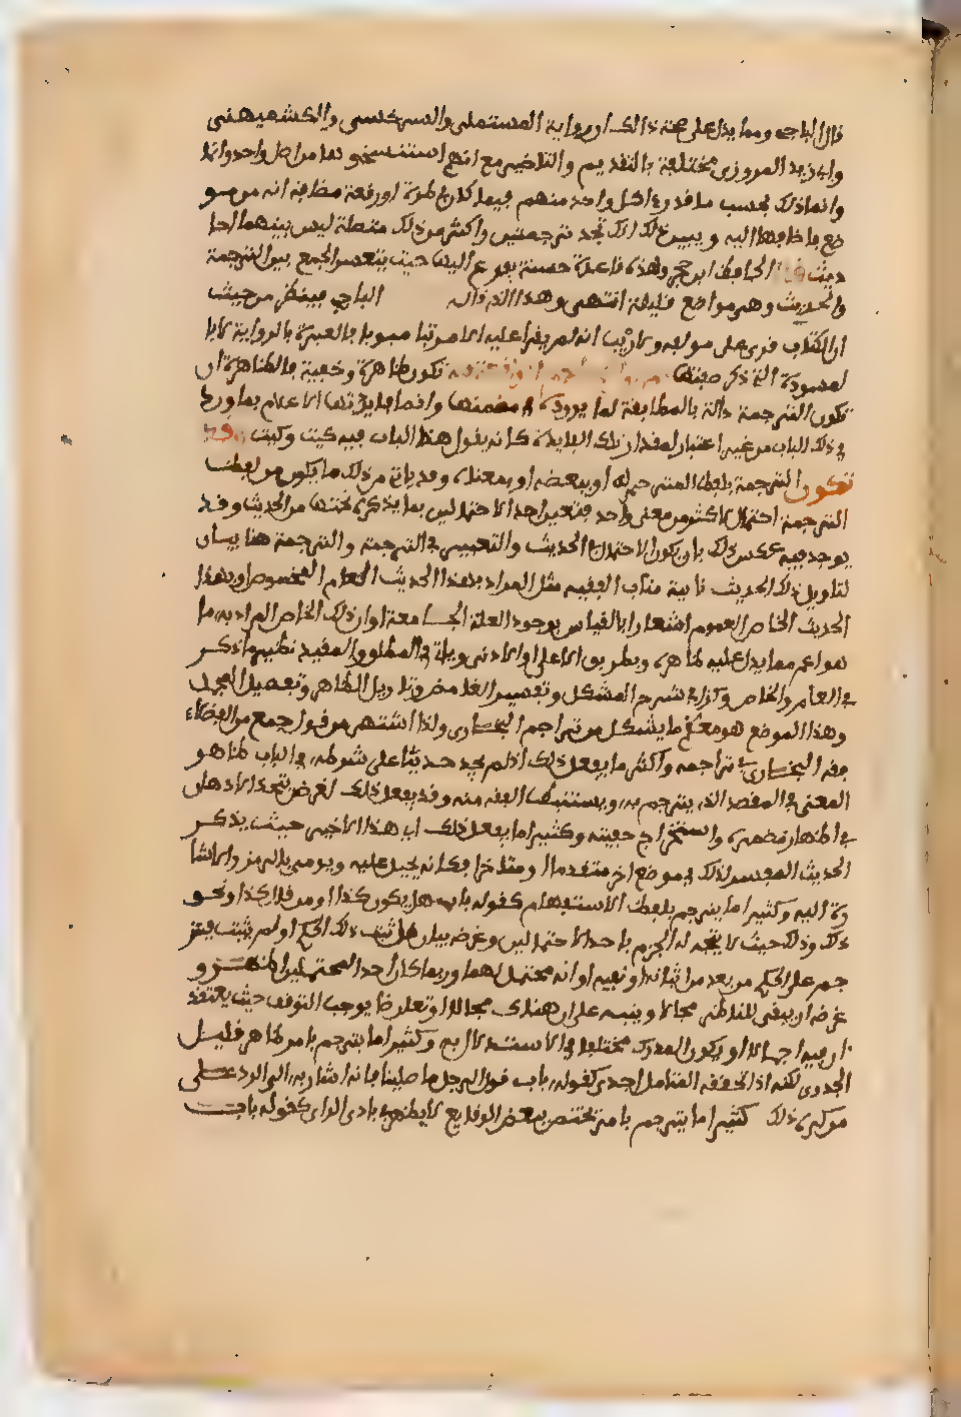 قال الباجي ومما يدل على صحة ذالك ان رواية المستملي والسرخسي والكشميهني
وابي زيد المروزي مختلفة بالتقديم والتاخير مع انهم استنسخوها من اصل واحد
وانما ذلك بحسب ما قدر كل واحد منهم فيما كان في طرة او رقعة مضافة انه من مو
ضع ما فاضافها اليه ويبين ذلك انك تجد ترجمتين واكثر من ذلك متصلة ليس بينهما احا
ديث قال الحافظ ابن حجر وهذه قاعدة حسنة يفزع اليها حيث يتعسر الجمع بين الترجمة
والحديث وهي مواضع قليلة انتهى وهذا الذي قاله الباجي فيه نظر من حيث
ان الكتاب قرئ على مولفه ولا ريب انه لم يقرا عليه الا مرتبا مبوبا فالعبرة بالرواية لا با
لمسودة التي ذكر صفتها تكون ظاهرة وخفية فالظاهرة ان
تكون الترجمة دالة بالمطابقة لما يورده في مضمنها وانما فايدتها الاعلام بما ورد
في ذلك الباب من غير اعتبار لمقدار تلك الفايدة كانه يقول هذا الباب فيه كيت وكيت وقد
تكون الترجمة بلفظ المترجم له او ببعضه او بمعناه وقد ياتي من ذلك ما يكون من لفظ
الترجمة احتمال لاكثر من معنى واحد فيعين احد الاحتمالين بما يذكره تحتها من الحديث وقد
يوجد فيه عكس ذلك بان يكون الاحتمال في الحديث والتعيين في الترجمة والترجمة هنا بيان
لتاويل ذلك الحديث نايبة مناب قول الفقيه مثلا المراد بهذا الحديث العام الخصوص او بهذا
الحديث الخاص العموم اشعارا بالقياس بوجود العلة الجامعة او ان ذلك الخاص المراد به ما
هو اعم مما يدل عليه ظاهره بطريق الاعلى او الادنى وياتي في المطلق والمقيد نظير ما ذكر
في العام والخاص وكذا في شرح المشكل وتفسير الغامض وتاويل الظاهر وتفصيل المجمل
وهذا الموضع هو معظم ما يشكل من تراجم البخاري ولذا اشتهر من قول جمع من الفضلاء
فقه البخاري في تراجمه واكثر ما يفعل ذلك اذا لم يجد حديثا على شرطه في الباب ظاهر
المعنى في المقصد الذي يترجم به ويستنبط الفقه منه وقد يفعل ذلك لغرض شحذ الاذهان
في اظهار مضمره واستخراج خبيئه وكثيرا ما يفعل ذلك اي هذا الاخير حيث يذكر
الحديث المفسر لذلك في موضع اخر متقدما او متاخرا فكانه يحيل عليه ويومي بالرمز والاشا
رة اليه وكثيرا ما يترجم بلفظ الاستفهام كقوله باب هل يكون كذا او من قال كذا ونحو
ذلك وذلك حيث لا يتجه له الجزم باحد الاحتمالين وغرضه بيان هل ثبت ذلك الحكم او لم يثبت فيتر
جم على الحكم ومراده ما يفسر بعد من اثباته او نفيه او انه محتمل لهما وربما كان احد المحتملين اظهر و
غرضه ان يبقي للناظر مجالا وينبه على ان هناك مجالا او تعارضا يوجب التوقف حيث يعتقد
ان فيه اجمالا او يكون المدرك مختلفا في الاستدلال به وكثيرا ما يترجم بامر ظاهر قليل
الجدوى لكنه اذا تحققه المتامل اجدى كقوله باب قول الرجل ما صلينا فانه اشار به الى الرد على
من كره ذلك كثيرا ما يترجم بامر يختص ببعض الوقايع لا يظهر في بادي الراي كقوله باب